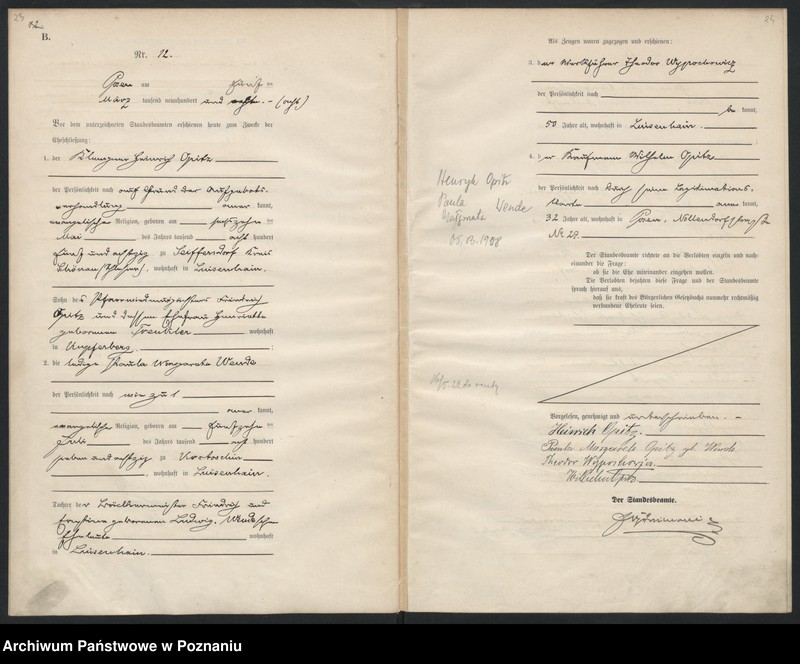 B.
Nr. 12.
Posen am fünf ten
März tausend neunhundert und acht. - (acht)
Vor dem unterzeichneten Standesbeamten erschienen heute zum Zwecke der
Eheschließung:
1. der Klempner Heinrich Opitz
der Persönlichkeit nach auf Grund der Aufgebots-
verhandlung aner kannt,
evangelischer Religion, geboren am
Mai des Jahres tausend acht hundert
fünf und achtzig zu Seiffersdorf Kreis
Schönau, wohnhaft in Luisenhain.
Sohn des Friedrich
Opitz und dessen Ehefrau Henriette
geborenen wohnhaft
in Kupferberg. ;
2. die ledige Paula Margarete Wende
der Persönlichkeit nach wie zu 1
aner kannt,
evangelischer Religion, geboren am fünfzehn ten
Juli des Jahres tausend acht hundert
sieben und achtzig zu Krotoschin
, wohnhaft in Luisenhain.
Tochter der Friedrich und
Ernstine geborenen Ludwig, Wende'schen
Eheleute wohnhaft
in Luisenhain.
Als Zeugen waren zugezogen und erschienen:
3. der Werkführer Theodor
der Persönlichkeit nach
be kannt,
50 Jahre alt, wohnhaft in Luisenhain.
;
4. der Kaufmann Wilhelm Opitz
der Persönlichkeit nach durch seine Legitimations-
karte aner kannt,
32 Jahre alt, wohnhaft in Posen, Nollendorfstraße
Nr. 29.
Der Standesbeamte richtete an die Verlobten einzeln und nach-
einander die Frage:
ob sie die Ehe miteinander eingehen wollen.
Die Verlobten bejahten diese Frage und der Standesbeamte
sprach hierauf aus,
daß sie kraft des Bürgerlichen Gesetzbuchs nunmehr rechtmäßig
verbundene Eheleute seien.
Henryk Opitz
Paula
Małgorzata Wende
1908
Vorgelesen, genehmigt und unterschrieben. -
Heinrich Opitz.
Paula Margarete Opitz gb. Wende.
Theodor
Wilhelm Opitz
Der Standesbeamte.
Archiwum Państwowe w Poznaniu